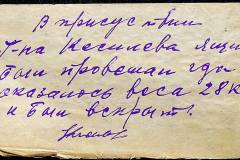 В присуствии
Г-на Киселева ящик
был провешан где
оказалось веса 28 К
и был вскрыт.